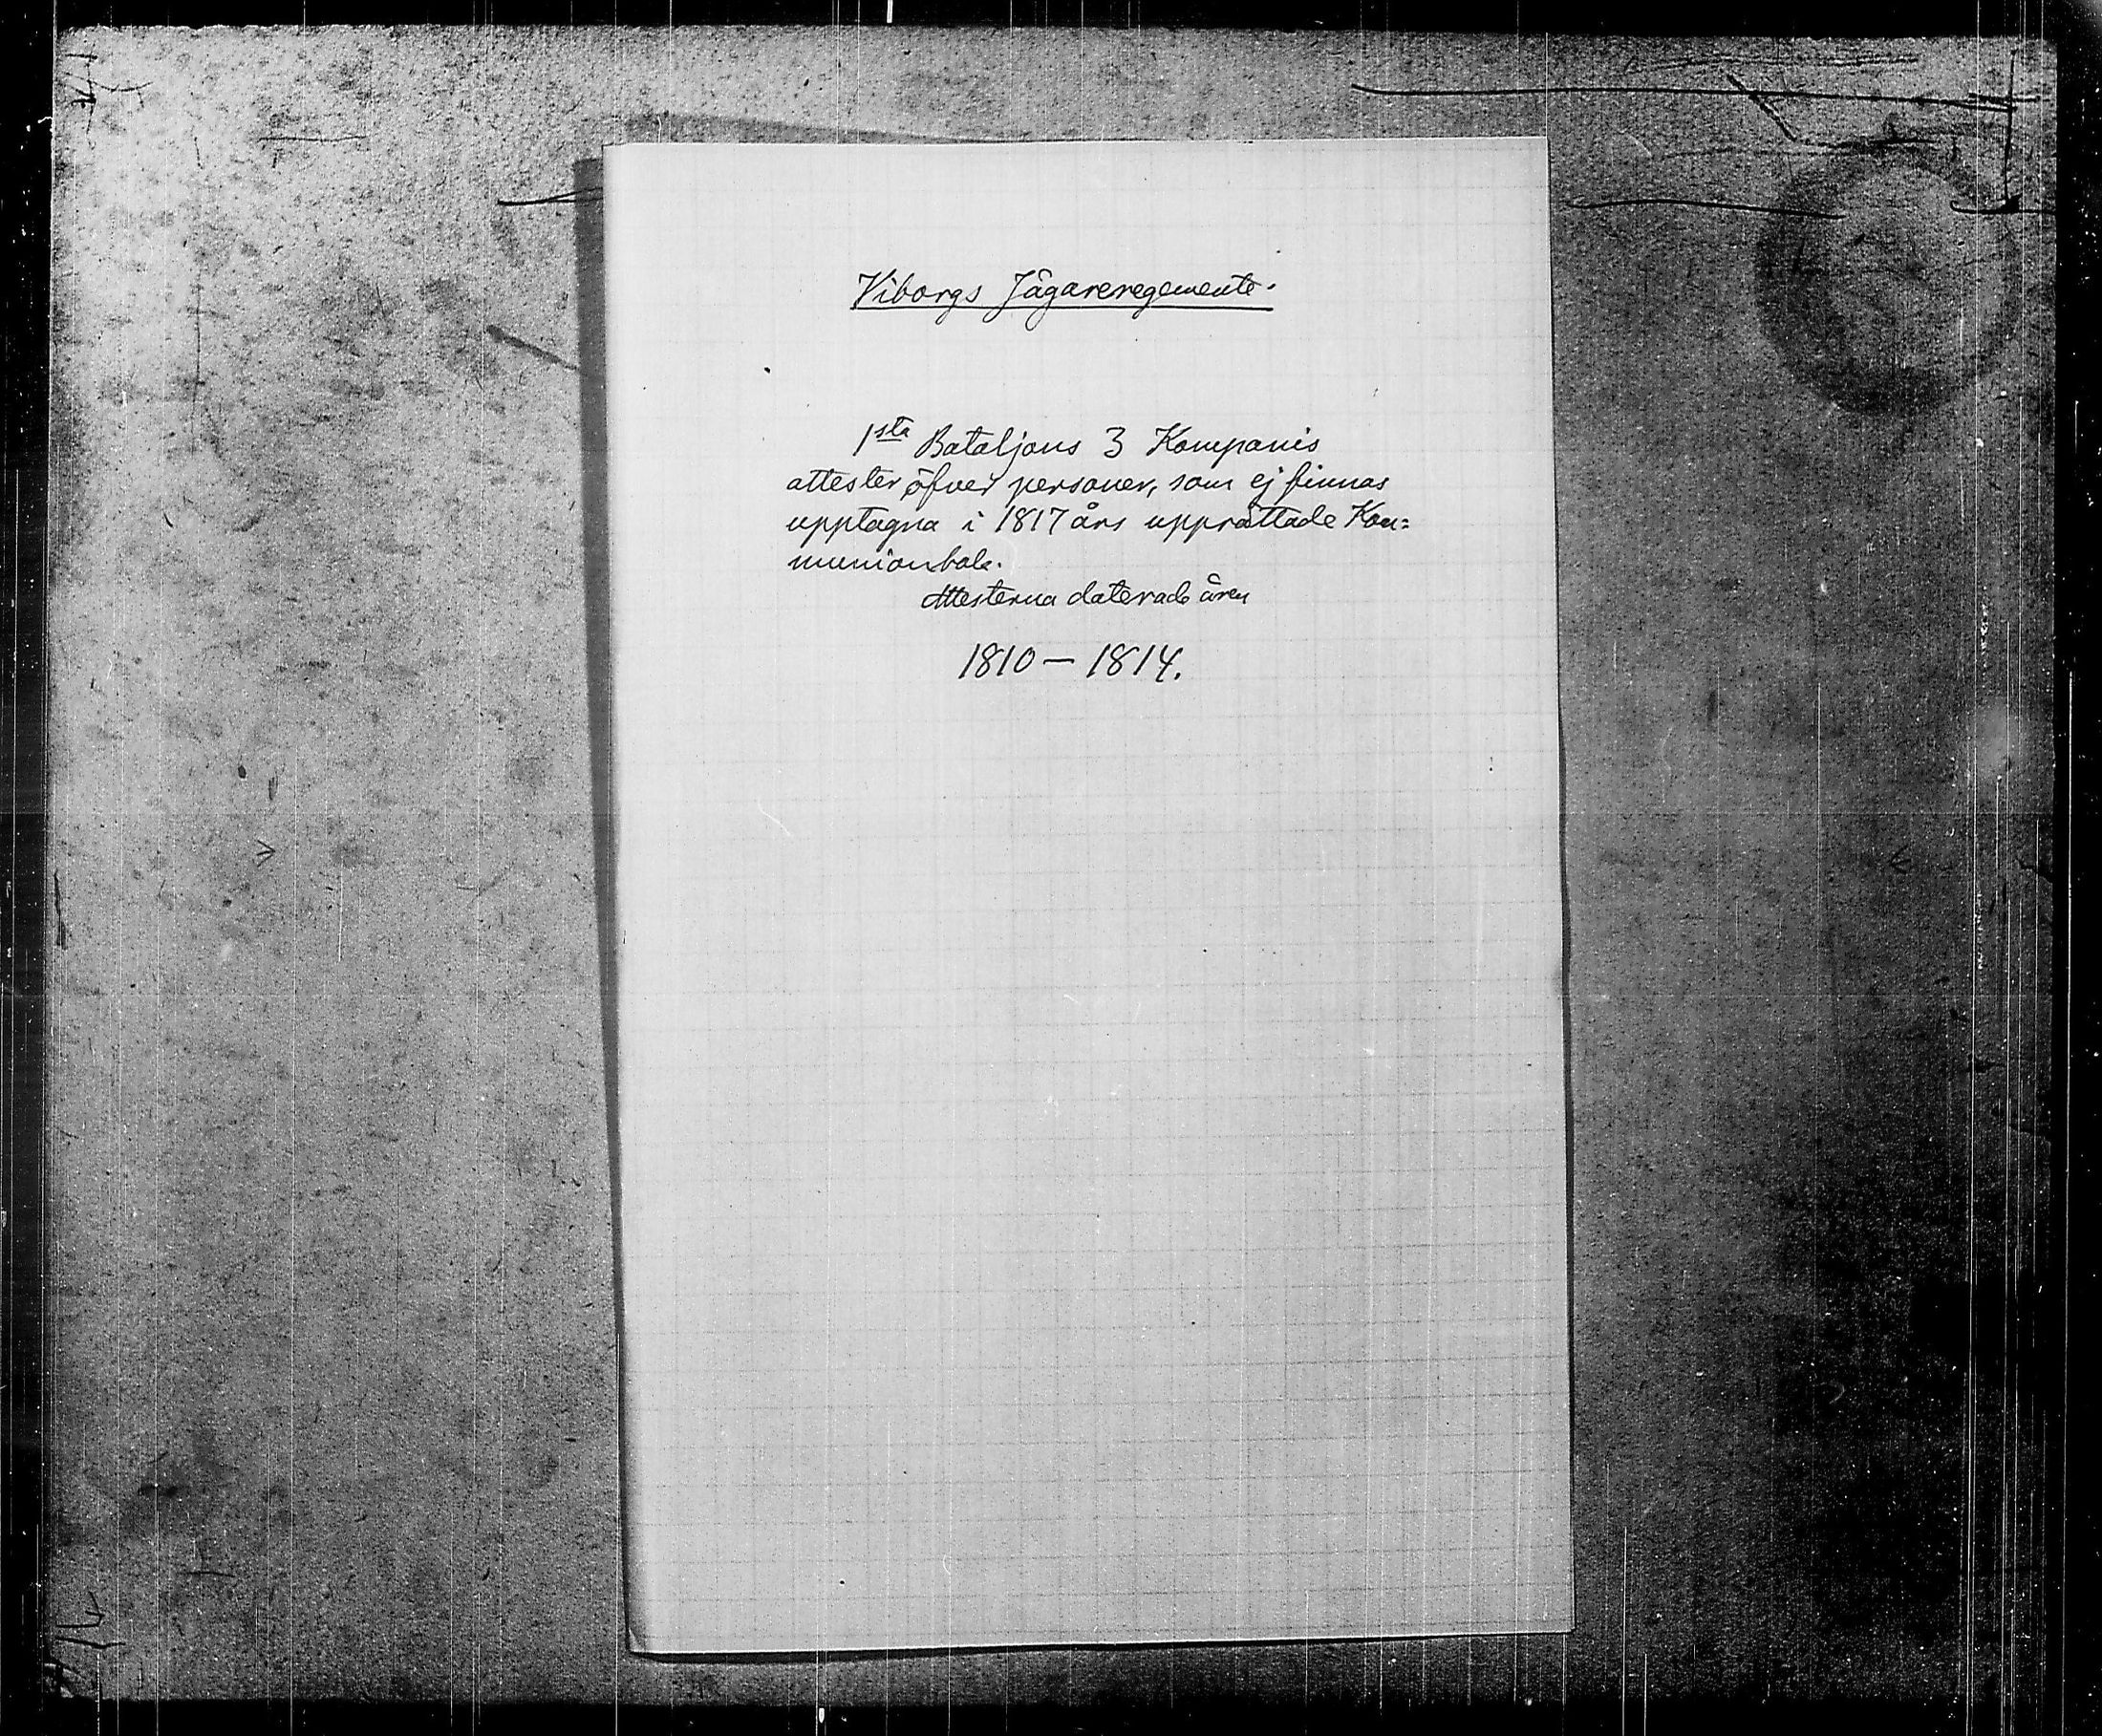 Viborgs Jägareregemente.
1sta Bataljons 3 Kompanis
attester öfver personer, som ej finnas
upptagna i 1817 års upprättade Kom=
munionbok.
Attesterna daterade åren
1810 — 1814.